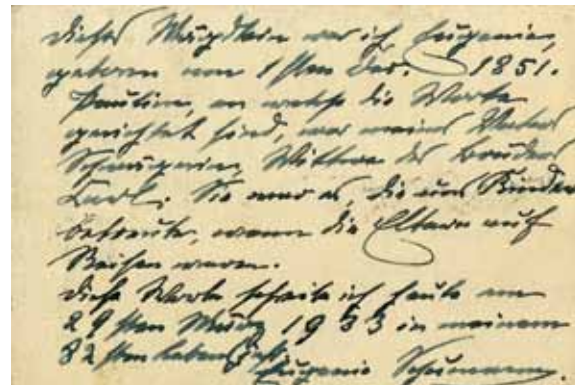 Dieses Mägdlein war ich, Eugenie,
geboren am 1sten Dez. 1851.
Pauline, an welche die Worte
gerichtet sind, war meines Vaters
Schwägerin, Wittwe des Bruders
Carl. Sie war es, die uns Kinder
betreute, wenn die Eltern auf
Reisen waren.
Diese Worte schreibe ich heute am
29sten März 1933 in meinem
82sten Lebensjahr.
Eugenie Schumann.